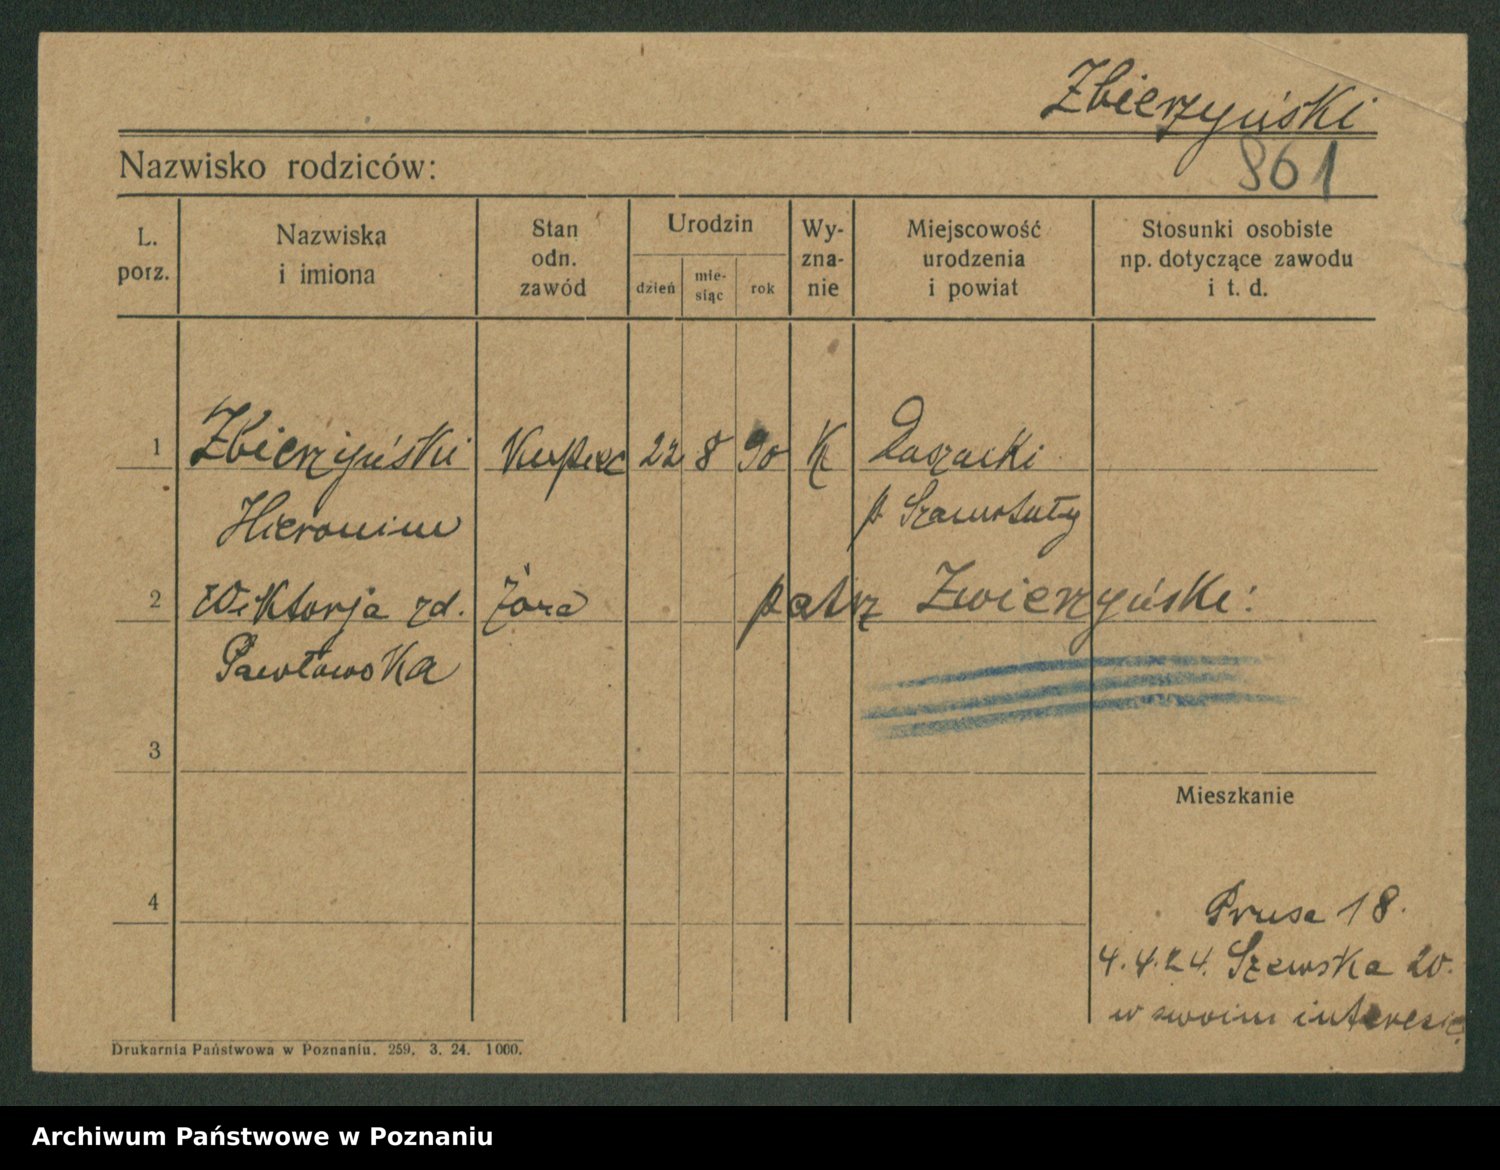 Zbierzyński
Nazwisko rodziców:
861
L. porz.
Nazwiska i imiona
Stan odn. zawód
Urodzin
dzień
mie-siąc
rok
Wy-zna-nie
Miejscowość urodzenia i powiat
Stosunki osobiste np. dotyczące zawodu i t. d.
1 Zbierzyński Kupiec 22 8 90 K
Hieronim p. Szamotuły
2 Wiktorja zd. żona patrz Zwierzyński:
Pawłowska
3
Mieszkanie
4
Prusa 18.
4.4.24. Szewska 20.
w swoim interesie
Drukarnia Państwowa w Poznaniu. 259. 3. 24. 1000.
Archiwum Państwowe w Poznaniu